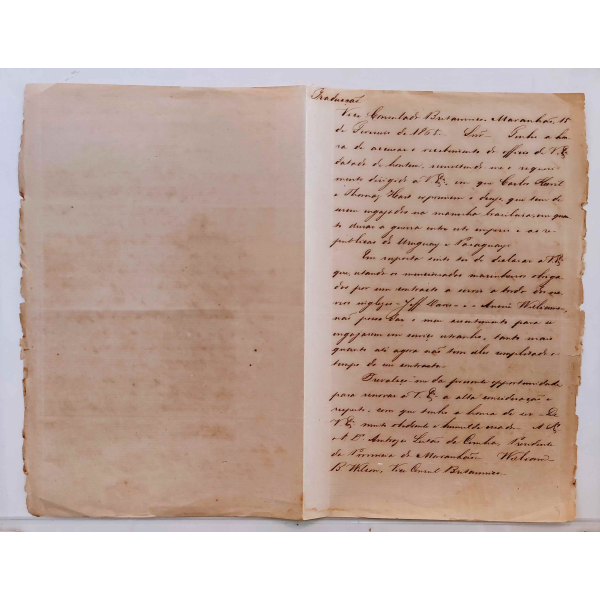 Traducção
Vice Consulado Britannico Maranhão, 15
de Fevereiro de 1865. Snr. Tenho a hon-
ra de accusar o recebimento do officio de V. Exª
datado de hontem, remettendo-me o requeri-
mento dirigido á V. Exª, em que Carlos Hunt
e Thomaz Hart exprimem o desejo que tem de
serem engajados na marinha brasileira, em quan-
to durar a guerra entre este imperio e as re-
publicas do Uruguay e Paraguay.
Em resposta sinto ter de declarar a V. Exª
que, estando os mencionados marinheiros obriga-
dos por um contracto a servir a bordo dos na-
vios inglezes - Jeff - e - Annie Williams,
não posso dar o meu assentimento para se
engajarem em serviço estranho, tanto mais
quanto até agora não tem elles completado o
tempo do seu contracto.
Prevaleço-me da presente opportunidade
para renovar á V. Exª a alta consideração e
respeito, com que tenho a honra de ser - De
V. Exª muito obediente e humilde criado. A S. Exª
o Sr. Dr. Leitão da Cunha, Presidente
da Provincia do Maranhão. William
B. Wilson, Vice Consul Britannico.